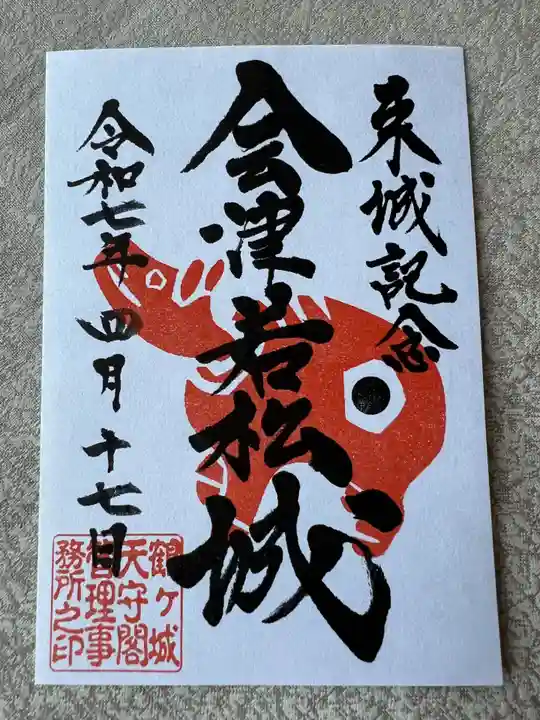 来城記念
会津若松城
令和七年四月十七日
鶴ヶ城
天守閣
管理事
務所之印